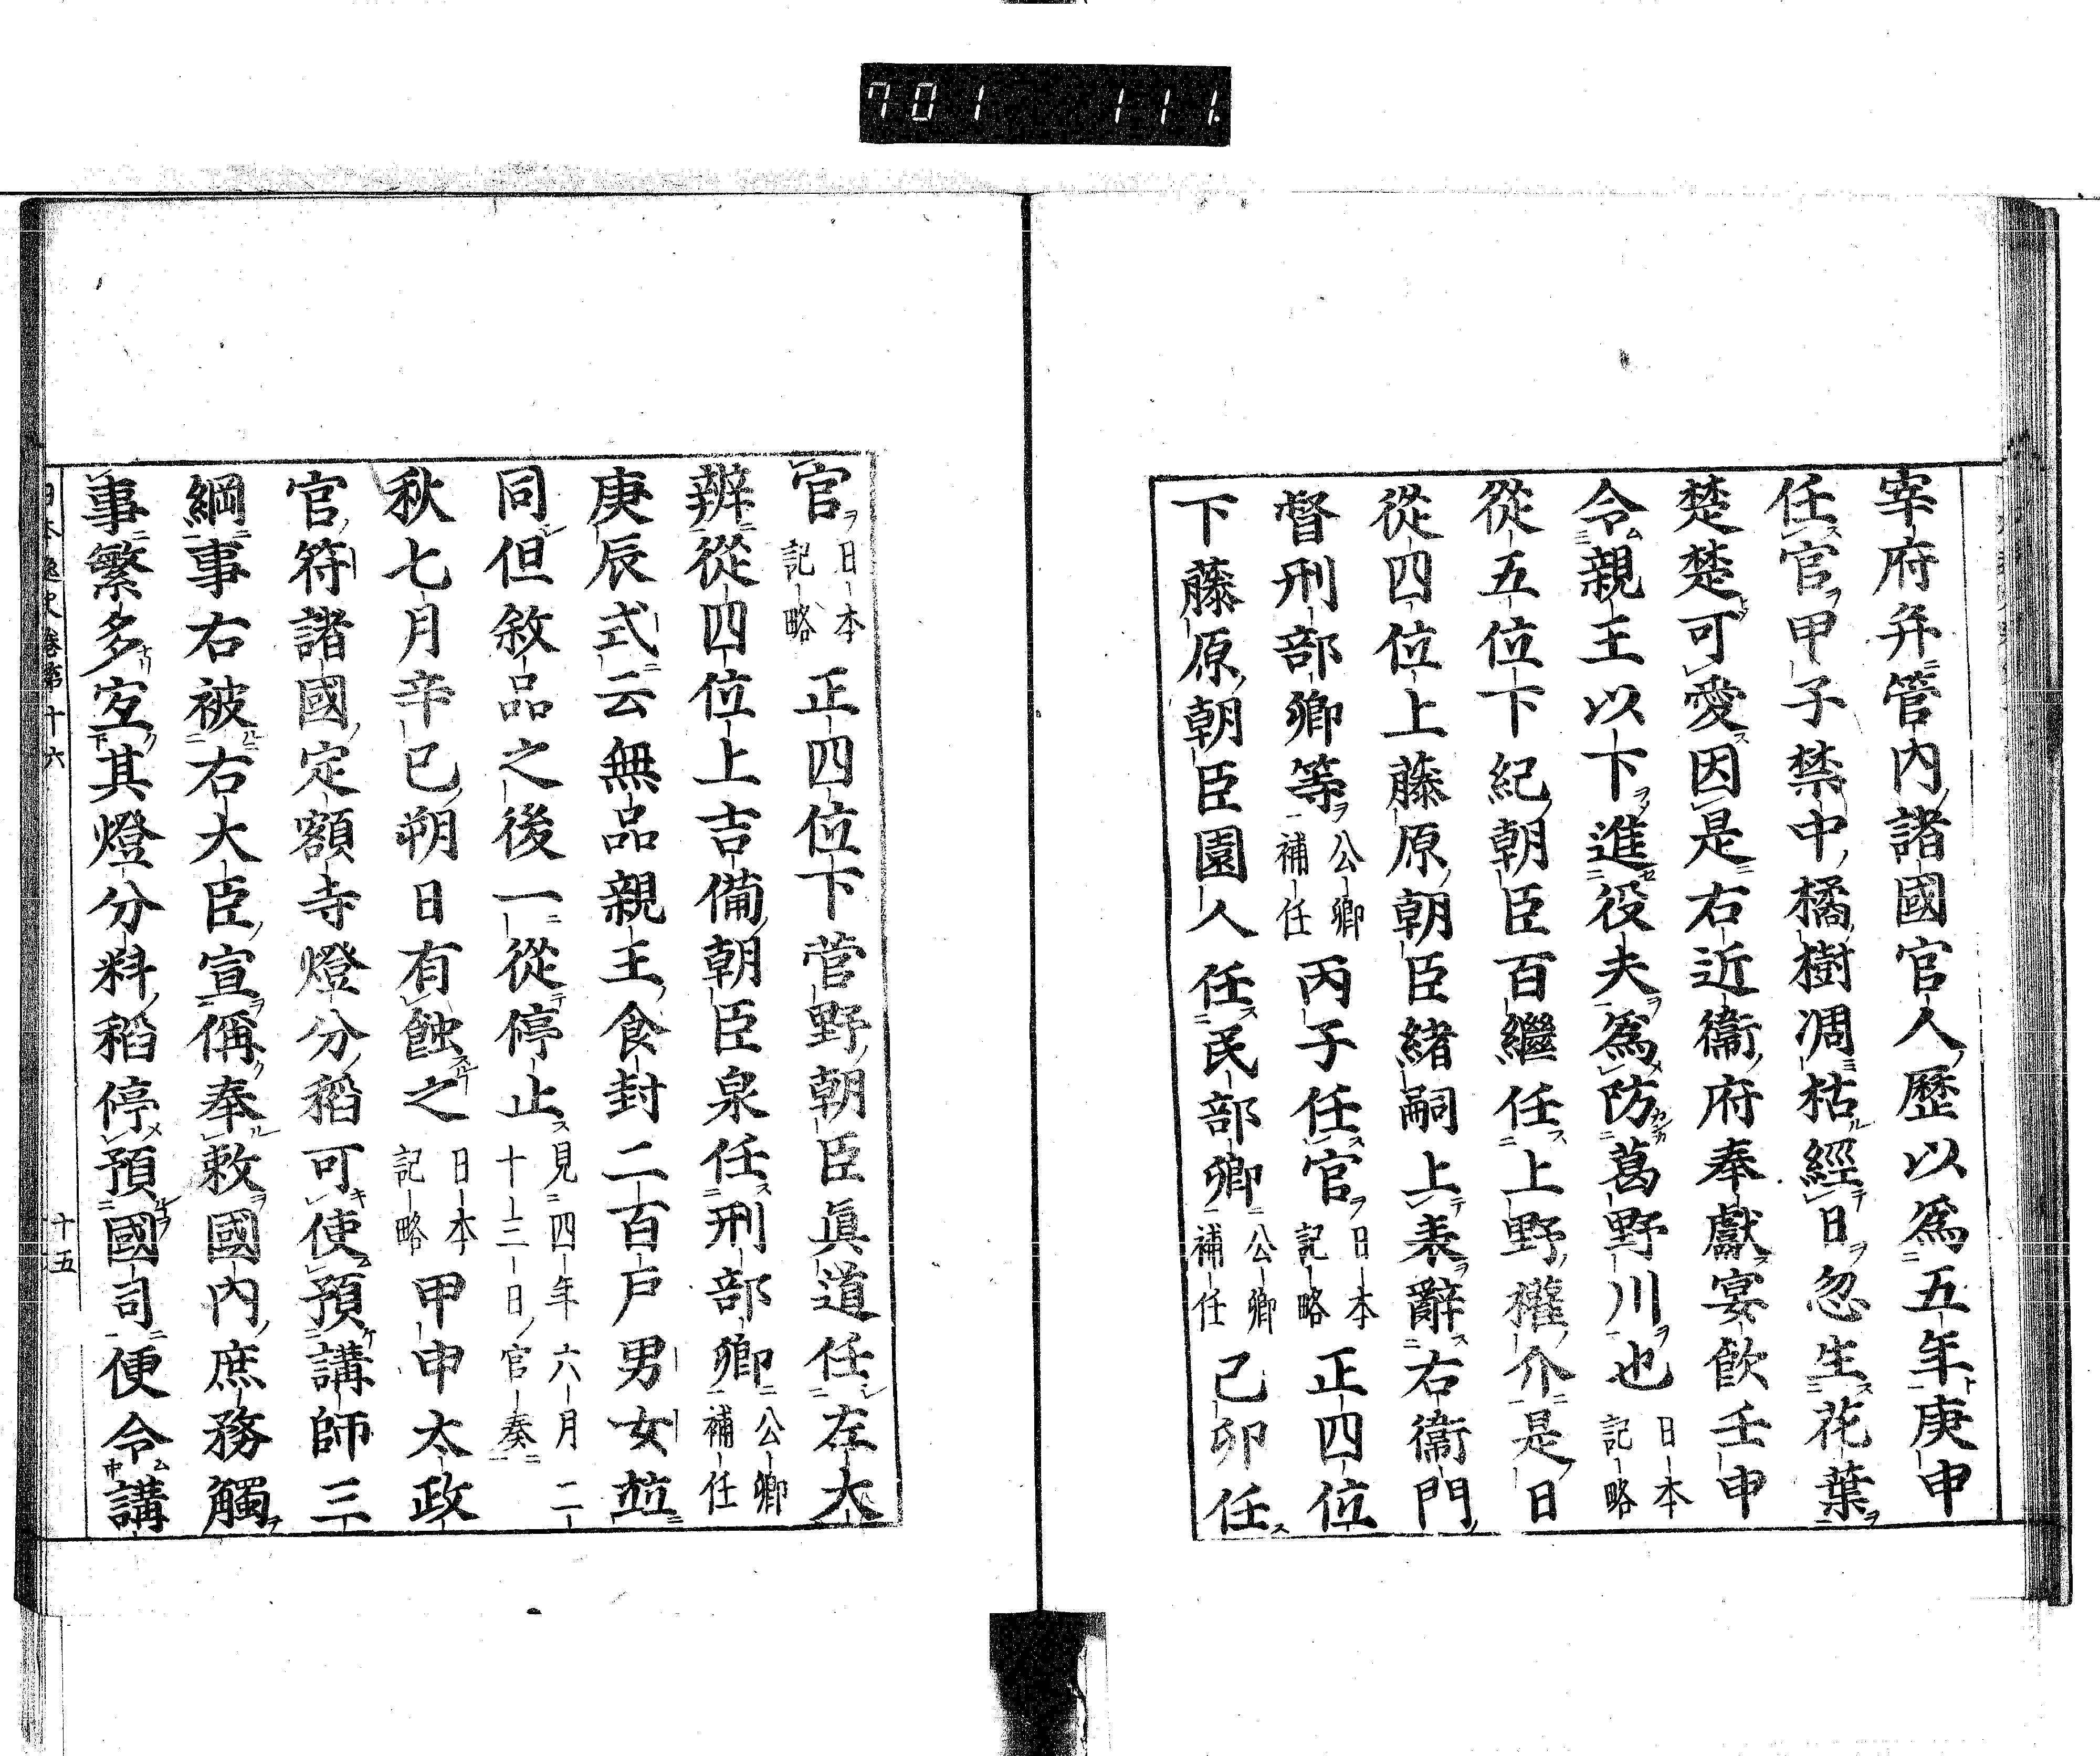 701 111.
宰府弁管内諸國官人歷以爲五年庚申
任官甲子禁中橘樹凋枯經日忽生花葉
楚楚可愛因是右近衞府奉獻宴飮壬申
令親王以下進役夫爲防葛野川也日本記略
從五位下紀朝臣百繼任上野權介是日
從四位上藤原朝臣緒嗣上表辭右衞門
督刑部卿等公卿補任丙子任官日本記略正四位
下藤原朝臣園人任民部卿公卿補任己卯任
官日本記略正四位下菅野朝臣眞道任左大
辨從四位上吉備朝臣泉任刑部卿公卿補任
庚辰式云無品親王食封二百戶男女竝
同但敘品之後一從停止見四年六月二十三日官奏
秋七月辛巳朔日有蝕之日本記略甲申太政
官符諸國定額寺燈分稻可使預講師三
綱事右被右大臣宣偁奉敕國內庶務觸
事繁多宐其燈分料稻停預國司便令講
日本逸史卷第十六 十五